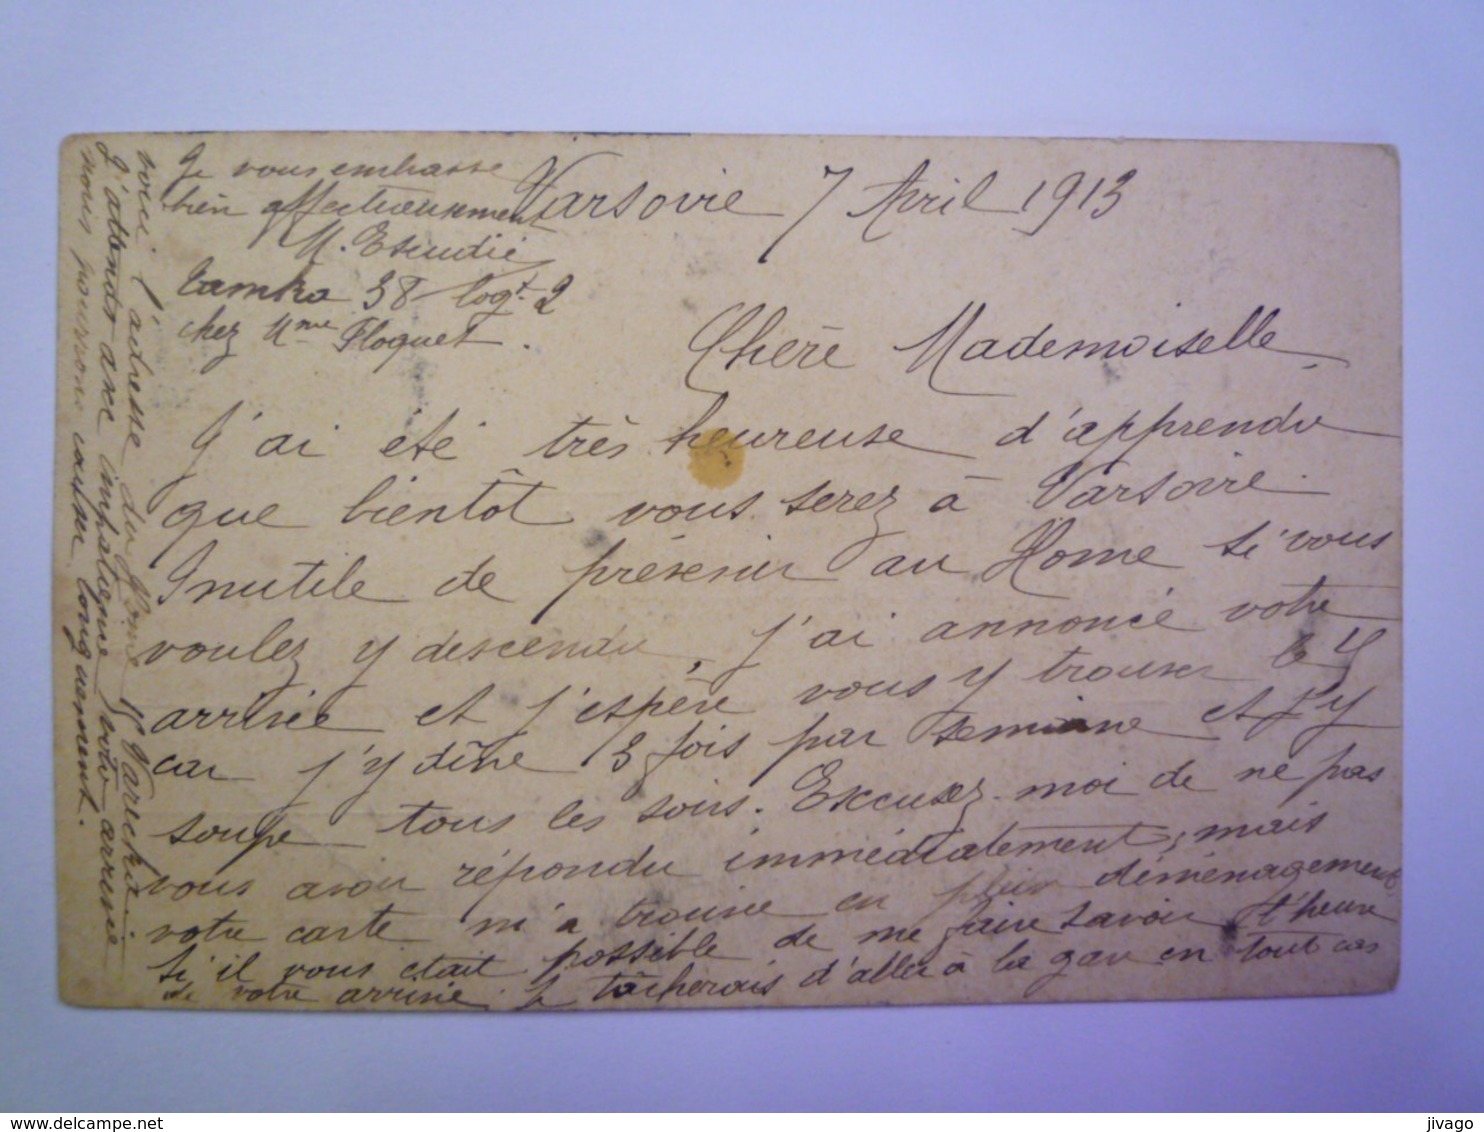 Varsovie 7 Avril 1913
Chère Mademoiselle
J'ai été très heureuse d'apprendre
que bientôt vous serez à Varsovie.
Inutile de prévenir au Home si vous
voulez y descendre, j'ai annoncé votre
arrivée et j'espère vous y trouver le
car j'y dîne 3 fois par semaine et j'y
soupe tous les soirs. Excusez-moi de ne pas
vous avoir répondu immédiatement, mais
votre carte m'a trouvée en plein déménagement
S'il vous était possible de me faire savoir l'heure
de votre arrivée je tâcherais d'aller à la gare en tout cas
voici l'adresse du Home 15 Varecka
J'attends avec impatience votre arrivée
nous pourrons causer longuement.
Je vous embrasse
bien affectueusement
M. Escudié
Tamka 38 logt 2
chez Mme Floquet.
jivago
www.delcampe.net